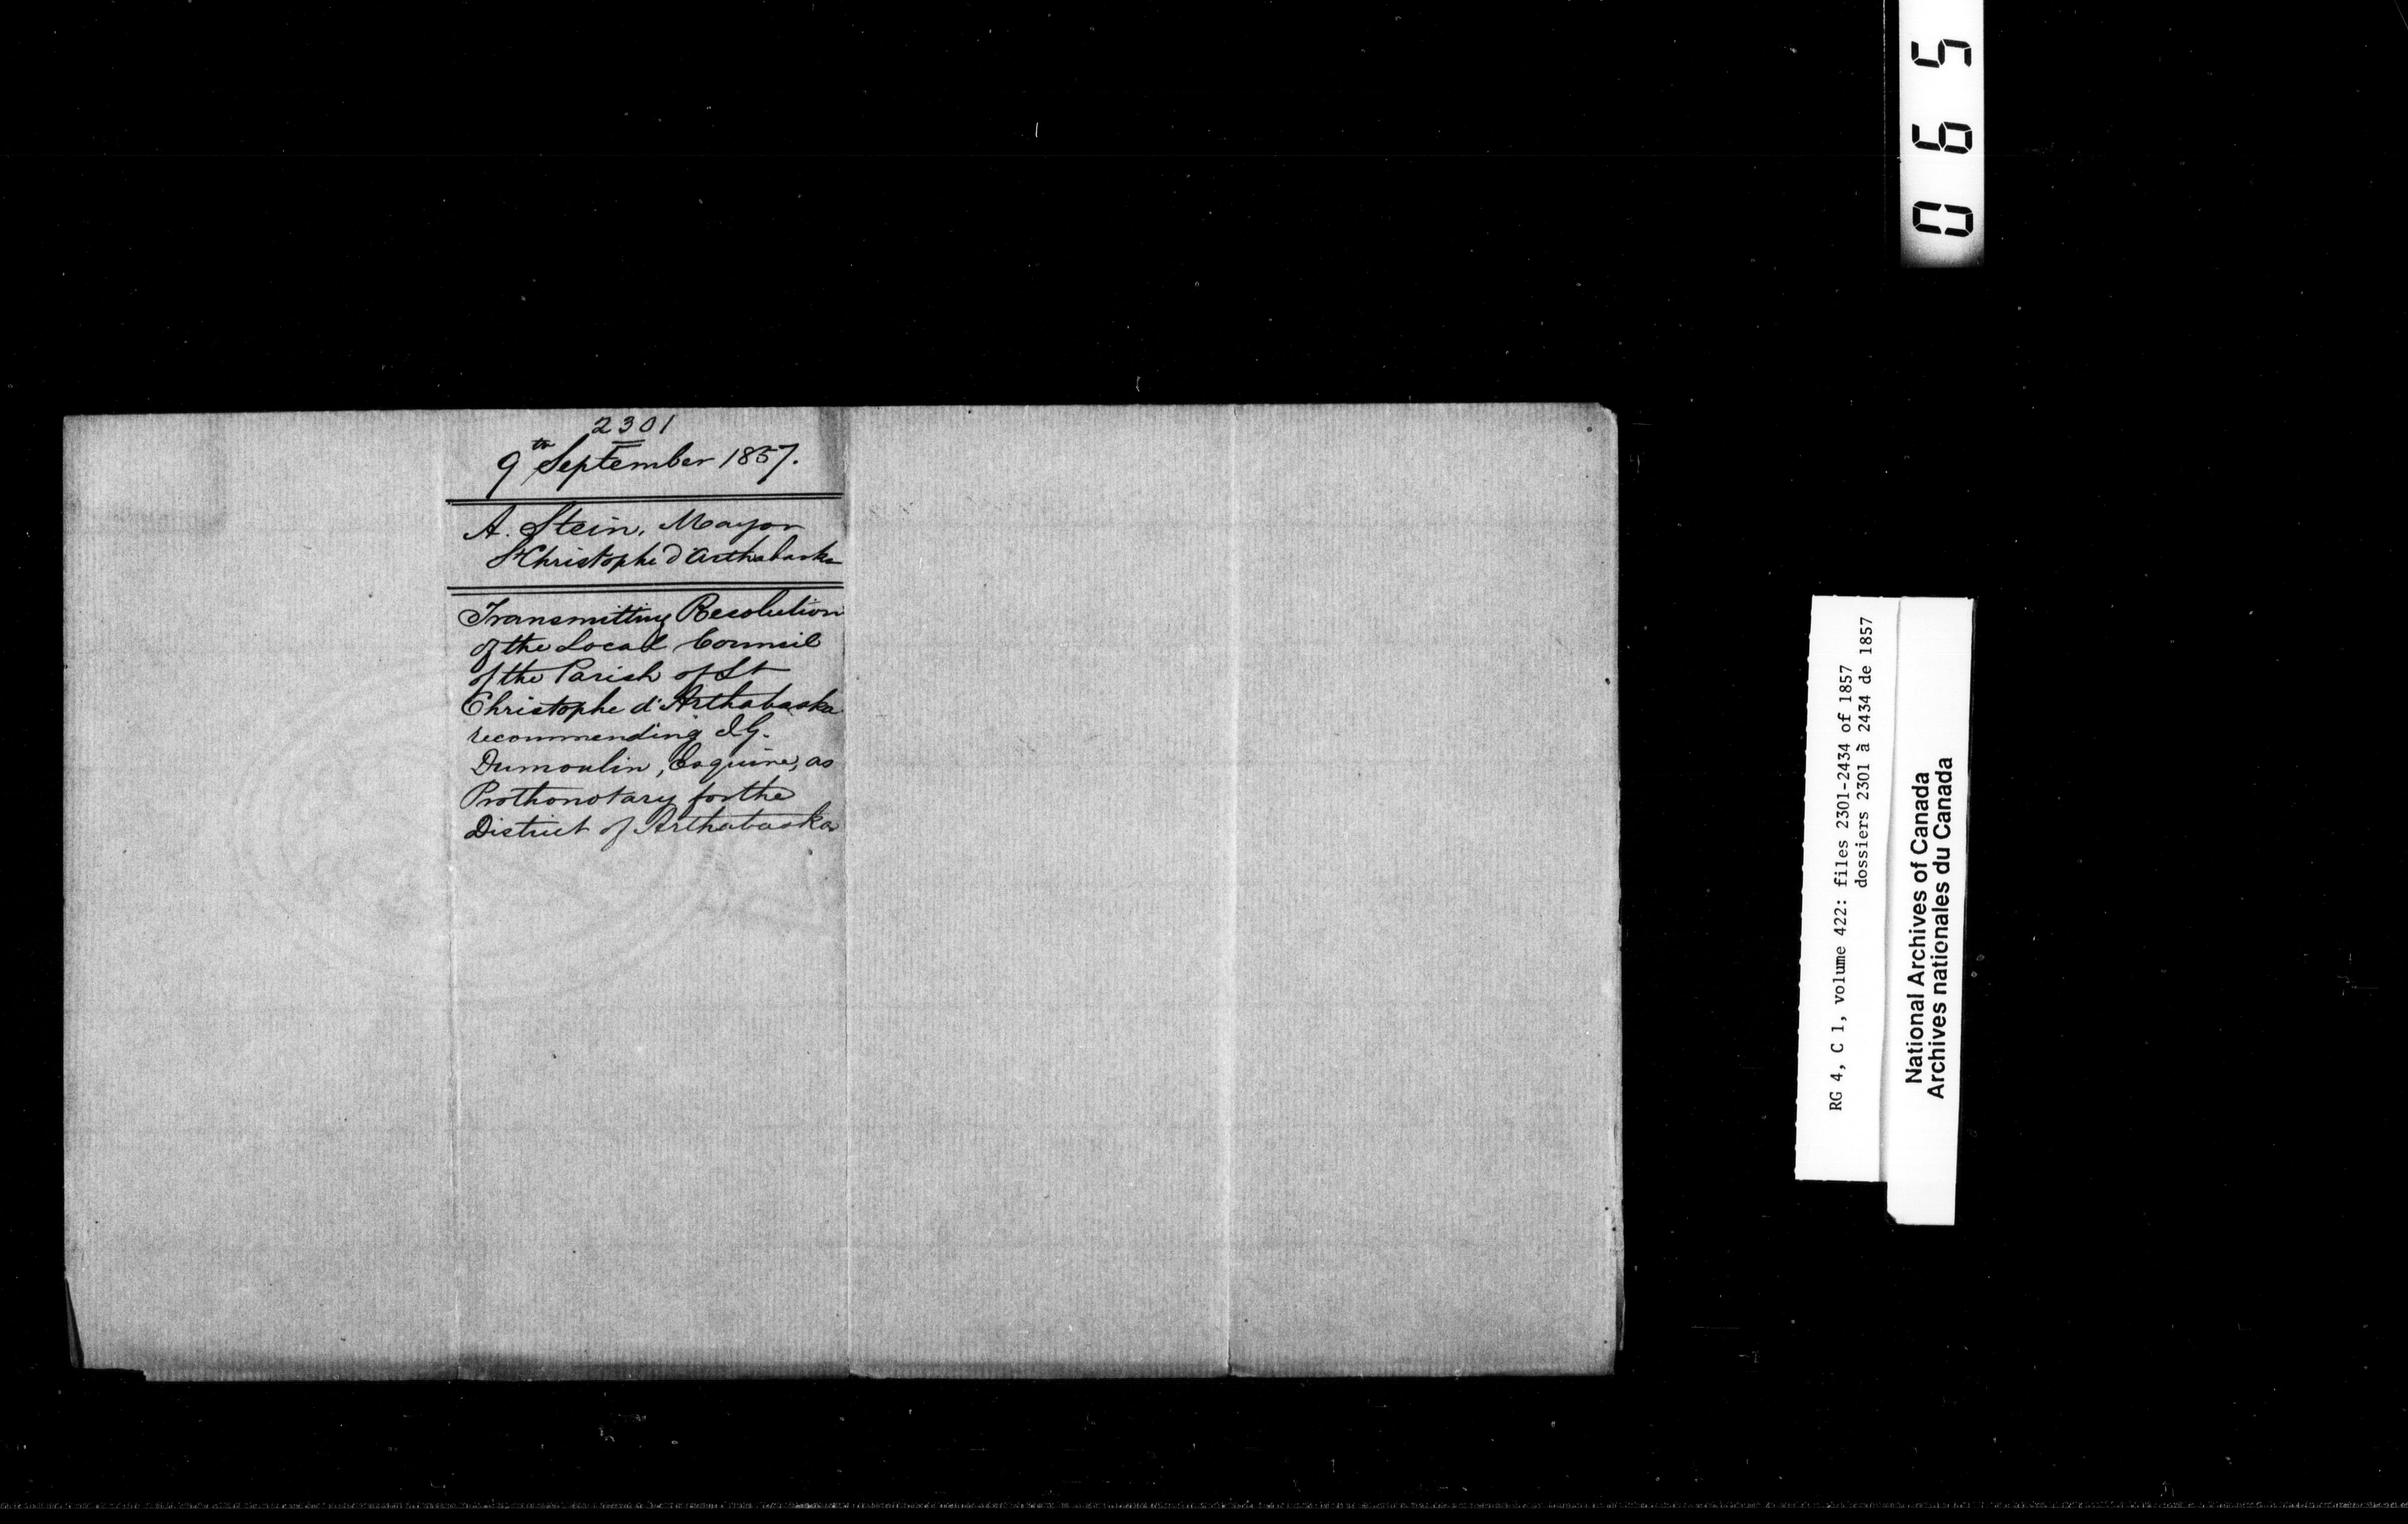 2301
9th September 1857.
A. Stein, Mayor
St Christophe d'Arthabaska
Transmitting Resolution
of the Local Council
of the Parish of St
Christophe d'Arthabaska
recommending J.G.
Dumoulin, Esquire, as
Prothonotary for the
District of Arthabaska
065
RG 4, C 1, volume 422: files 2301-2434 of 1857
dossiers 2301 à 2434 de 1857
National Archives of Canada
Archives nationales du Canada